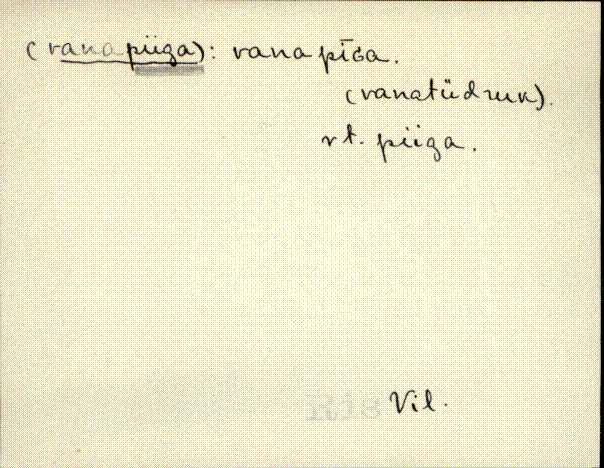 (vanapiiga): vana pīGa.
(vanatüdruk).
vt. piiga.
Ris Vil.